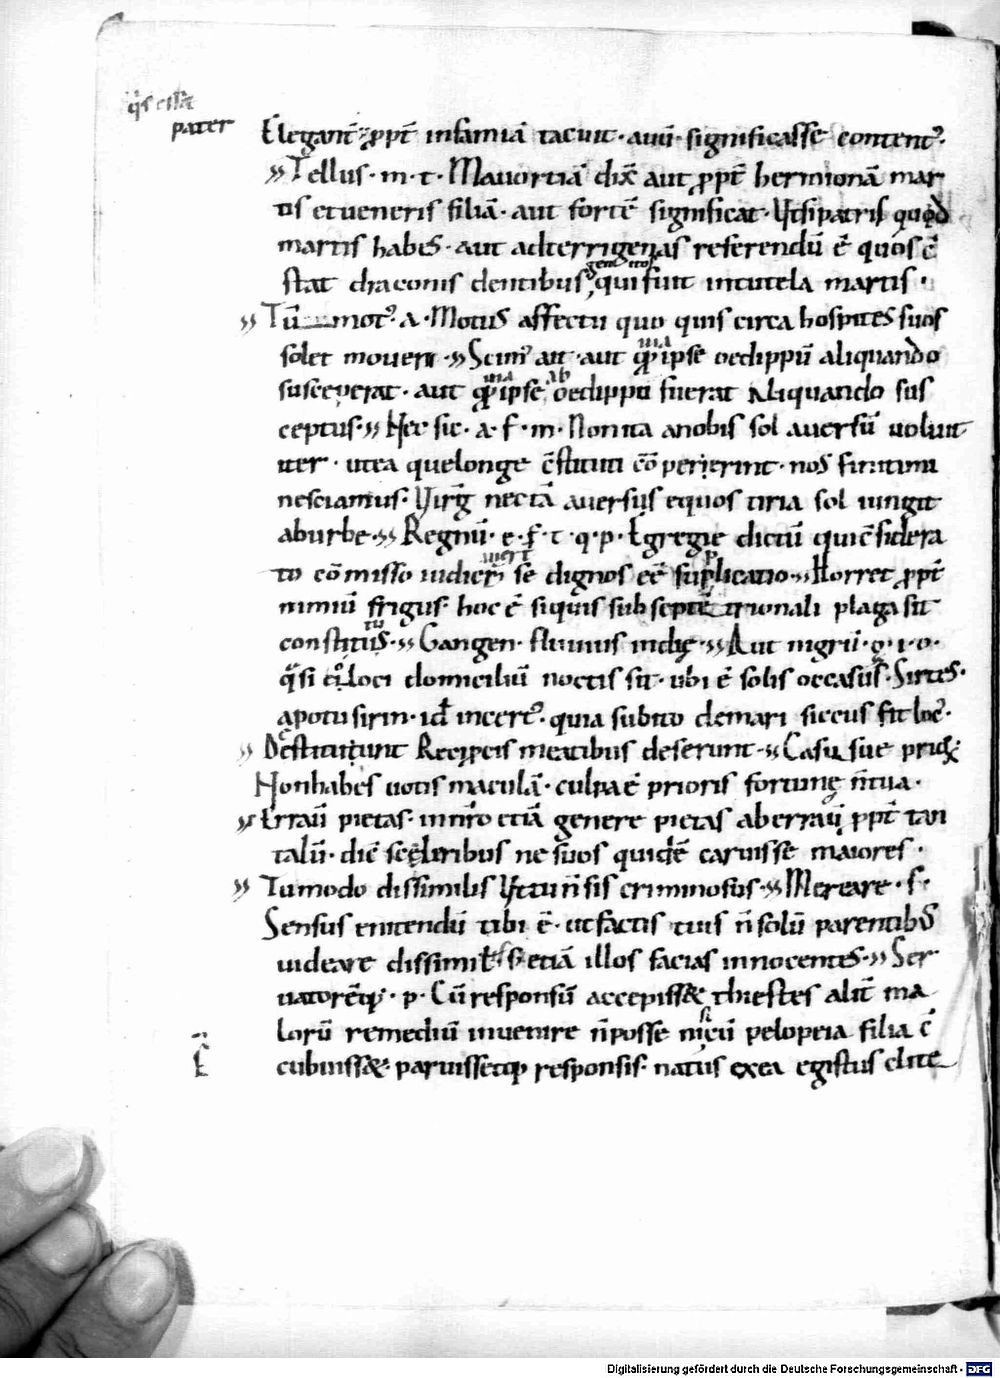 q̄s essæ
pater
Elegant̄ ꝓpt̄ infamiā tacuit · auū · significasse content᾿.
» Tellus · m · t · Mauortiā dix̄ aut ꝓpt̄ hermionā mar
tis et ueneris filiā · aut fortē significat · Vt si patris quod
martis habes · aut ad terrigenas referendū ē quos c̄
stat draconis dentibus genitos qui sunt in tutela martis ·
» Tū mot᾿ · a · Motus affectu quo quis circa hospites suos
solet moueri · » Scim᾿ aut ꝙ ipse oedippū aliquando
susceperat · aut ꝙ ipse ab oedippo fuerat aliquando sus
ceptus · » Nec sic · a · f · m · Non ita a nobis sol auersū uoluit
iter · ut ea que longe c̄stituti cōpererint · nos finitimi
nesciamus · Virḡ nec tā auersus equos tiria sol iungit
ab urbe · » Regnū · e · f · t · q · p · Egregie dictū qui c̄sidera
to cōmisso iudicet se dignos eē supplicatio · » Horret ꝓpt̄
nimiū frigus · hoc ē siquis sub septē trionali plaga sit
constitutus · » Gangen · fluuius indię · » Aut nigrū · q · i · o ·
q̄si loci domiciliū noctis sit · ubi ē solis occasus · Sirtes ·
apotu sirin · id incert᾿ · quia subito de mari siccus fit loc᾿ ·
» Destituunt Recip̄cis meatibus deserunt · » Casusue
Non habes uotis maculā · culpa ē prioris fortunę n̄ tua ·
» Errauī pietas · in nr̄o etiā genere pietas aberrauī ꝓpt̄ tan
talū · diē sceleribus ne suos quidē caruisse maiores ·
» Tu modo dissimilis Vt tu n̄ sis criminosus · » Mereare · s ·
Sensus enitendū tibi ē · ut factis tuis n̄ solū parentib᾿
uideare dissimilis s; etiā illos facias innocentes · » Ser
uatorēq; · p · Cū responsū accepiss& thiestes alit̄ ma
lorū remediū inuenire n̄ posse nisi cū pelopeia filia c̄
cubuiss& · paruissetq; responsis · natus ex ea egistus